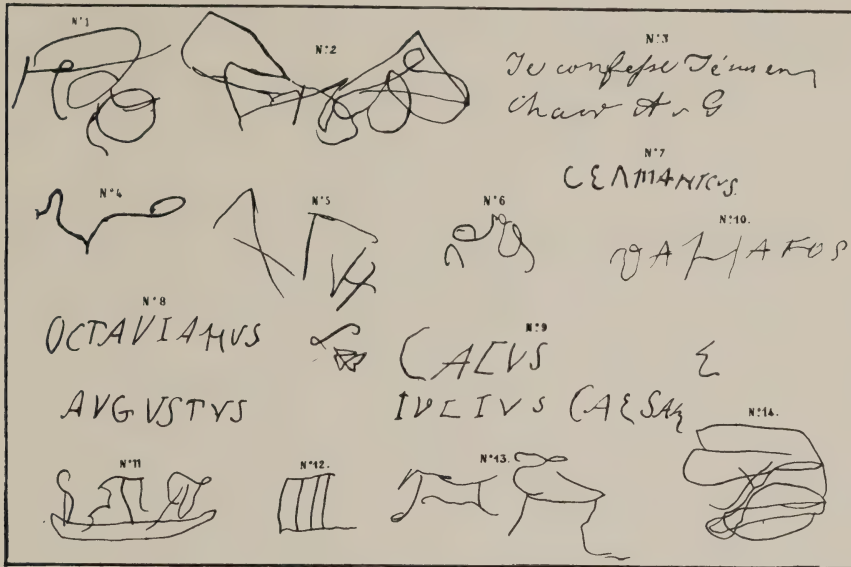 N° 1
N° 2
N° 3
Je confesse Jésus en
chair A v G
N° 4
N° 5
N° 6
N° 7
CERMANICVS.
N° 10.
N° 8
OCTAVIANVS
N° 9
CAEVS
AVGVSTVS
IVLIVS CAESAR
N° 11
N° 12.
N° 13.
N° 14.